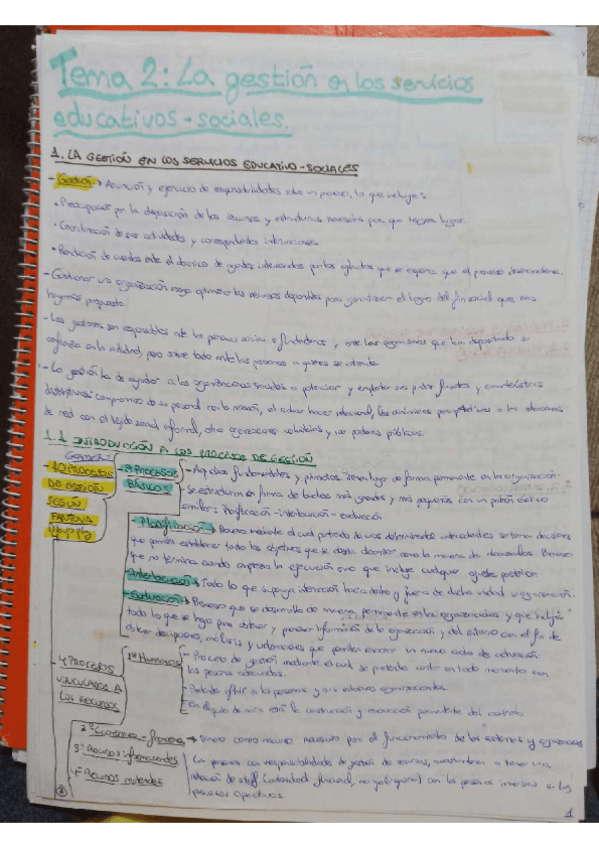 Tema 2: La gestión en los servicios
educativos-sociales.
1. LA GESTIÓN EN LOS SERVICIOS EDUCATIVO-SOCIALES
- Gestión → Asunción y ejercicio de responsabilidades sobre un proceso, lo que incluye:
• Preocupación por la disposición de los recursos y estructuras necesarias para que tengan lugar.
• Coordinación de sus actividades y correspondientes interacciones.
• Rendición de cuentas ante el abanico de agentes interesados por los efectos que se espera que el proceso desencadene.
- Gestionar una organización exige optimizar los recursos disponibles para garantizar el logro del fin social que nos
hayamos propuesto.
- Los gestores son responsables ante las personas socias o fundadoras, ante los organismos que han depositado su
confianza en la entidad, pero sobre todo ante las personas a quienes se atiende.
- La gestión ha de ayudar a las organizaciones sociales a potenciar y explotar sus puntos fuertes y características
distintivas: compromiso de su personal con la misión, el saber hacer relacional, las dinámicas participativas o las relaciones
de red con el tejido social informal, otras organizaciones voluntarias y los poderes públicos.
1.1 INTRODUCCIÓN A LOS PROCESOS DE GESTIÓN
10 PROCESOS
DE GESTIÓN
SEGÚN
FANTOVA
PROCESOS
BÁSICOS
- Aquellos fundamentales y primeros. Tienen lugar de forma permanente en la organización.
- Se estructuran en forma de bucles más grandes y más pequeños con un patrón cíclico
similar: Planificación - interlocución - evaluación
Planificación → Proceso mediante el cual partiendo de unos determinados antecedentes se toman decisiones
que permiten establecer tanto los objetivos que se desea alcanzar como la manera de alcanzarlos. Proceso
que no termina cuando empieza la ejecución sino que incluye cualquier ajuste posterior.
Interlocución → Todo lo que suponga interacción hacia dentro y fuera de dicha unidad u organización.
Evaluación → Proceso que se desarrolla de manera permanente en las organizaciones y que incluye
todo lo que se haga para obtener y procesar información de la organización y del entorno con el fin de
obtener descripciones, análisis y valoraciones que permitan encarar un nuevo ciclo de actuación.
4 PROCESOS
VINCULADOS A
LOS RECURSOS
1º Humanos
- Proceso de gestión mediante el cual se pretende contar en todo momento con
las personas adecuadas.
- Pretende influir a las personas y sus entornos organizacionales.
2º Económico-financiera →
3º Recursos informacionales
4º Recursos materiales
Las personas con responsabilidades de gestión de recursos
1